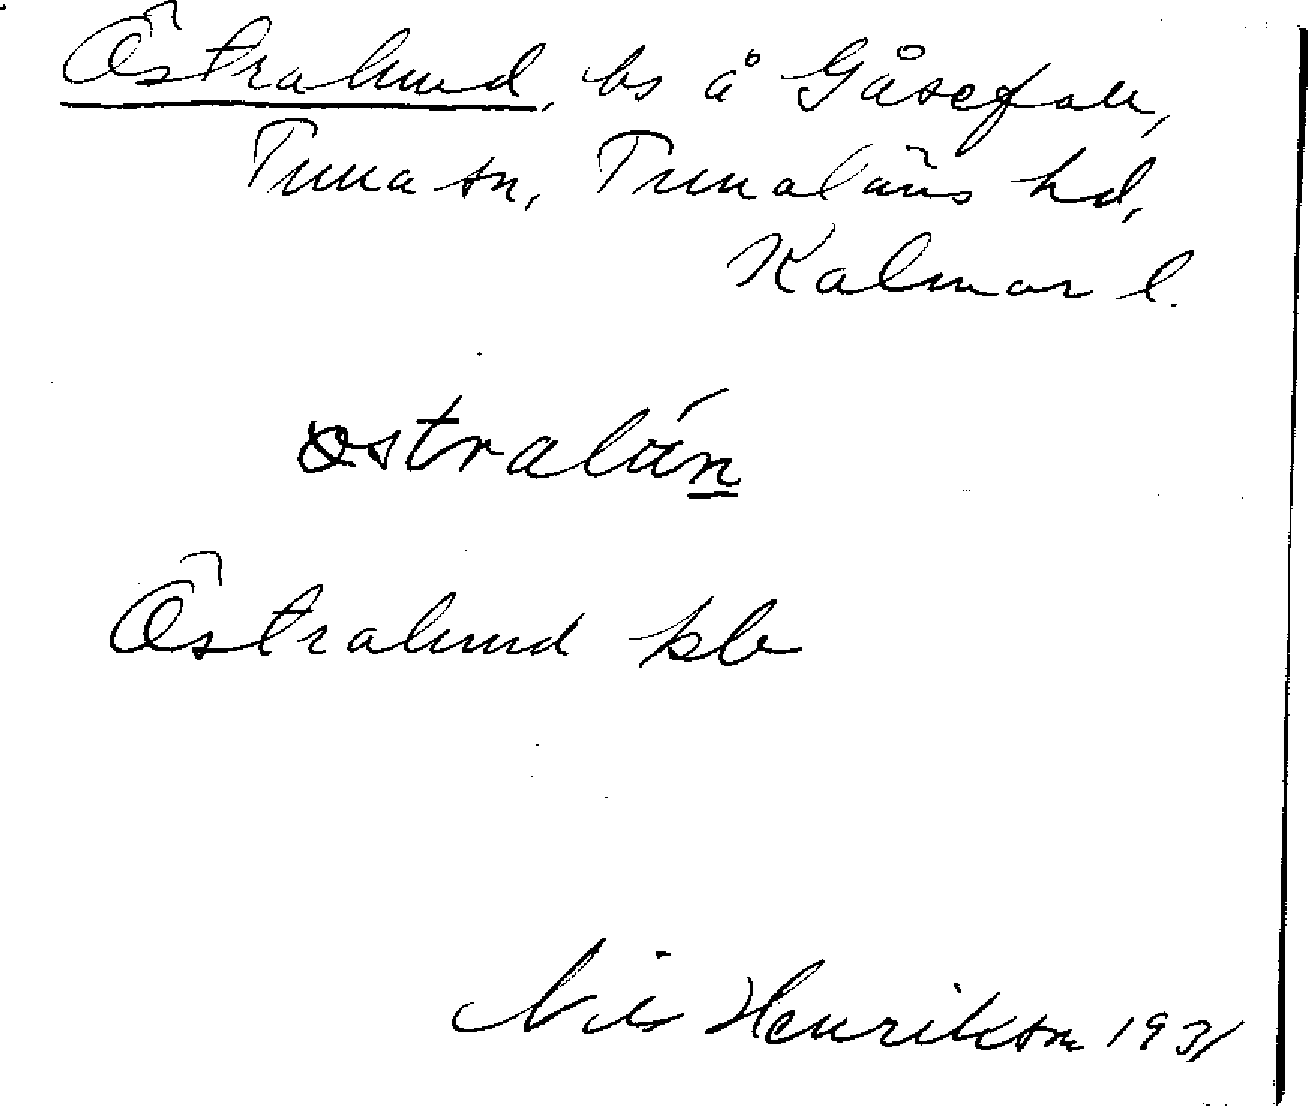 Östralund, bs å Gåsefall,
Tuna sn, Tunaläns hd,
Kalmar l.
östralún
Östralund kb
Nils Henrikson 1931